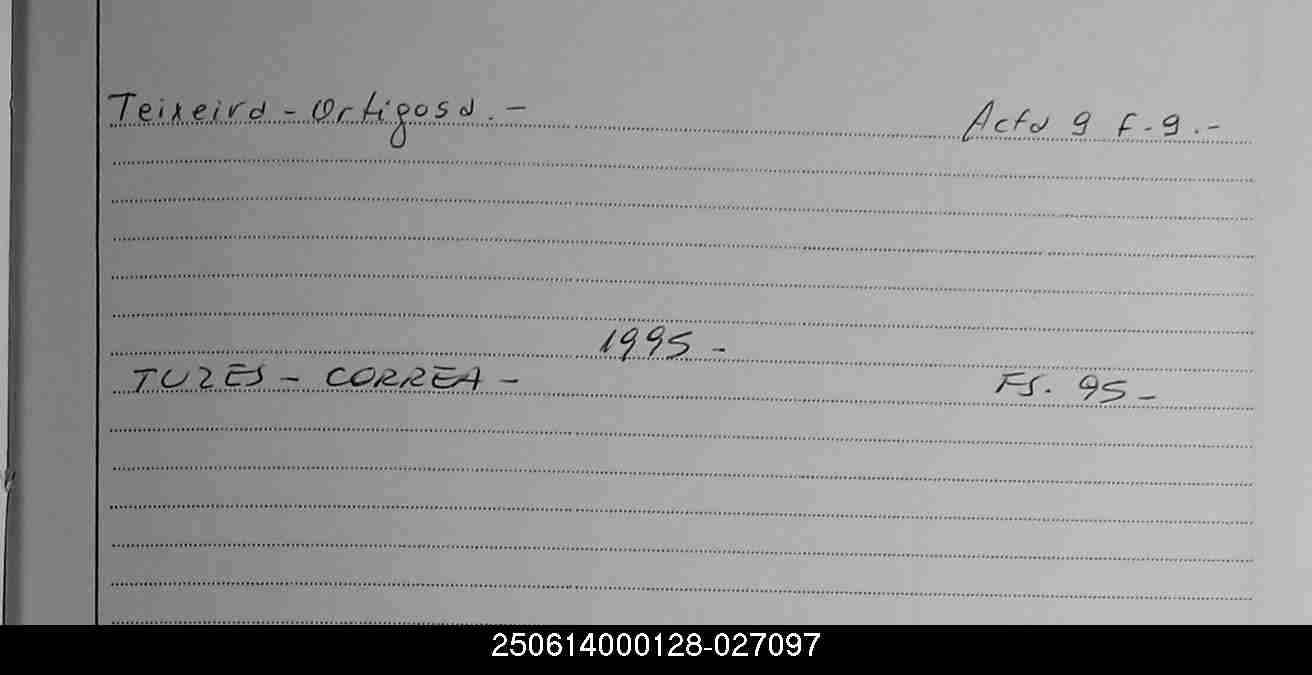 Teixeira - Ortigosa. - Acta 9 F. 9. -
1995 -
TUZES - CORREA - FS. 95 -
250614000128-027097